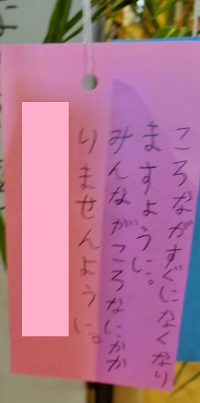 ころながすぐになくなり
ますように。
みんながころなにかか
りませんように。